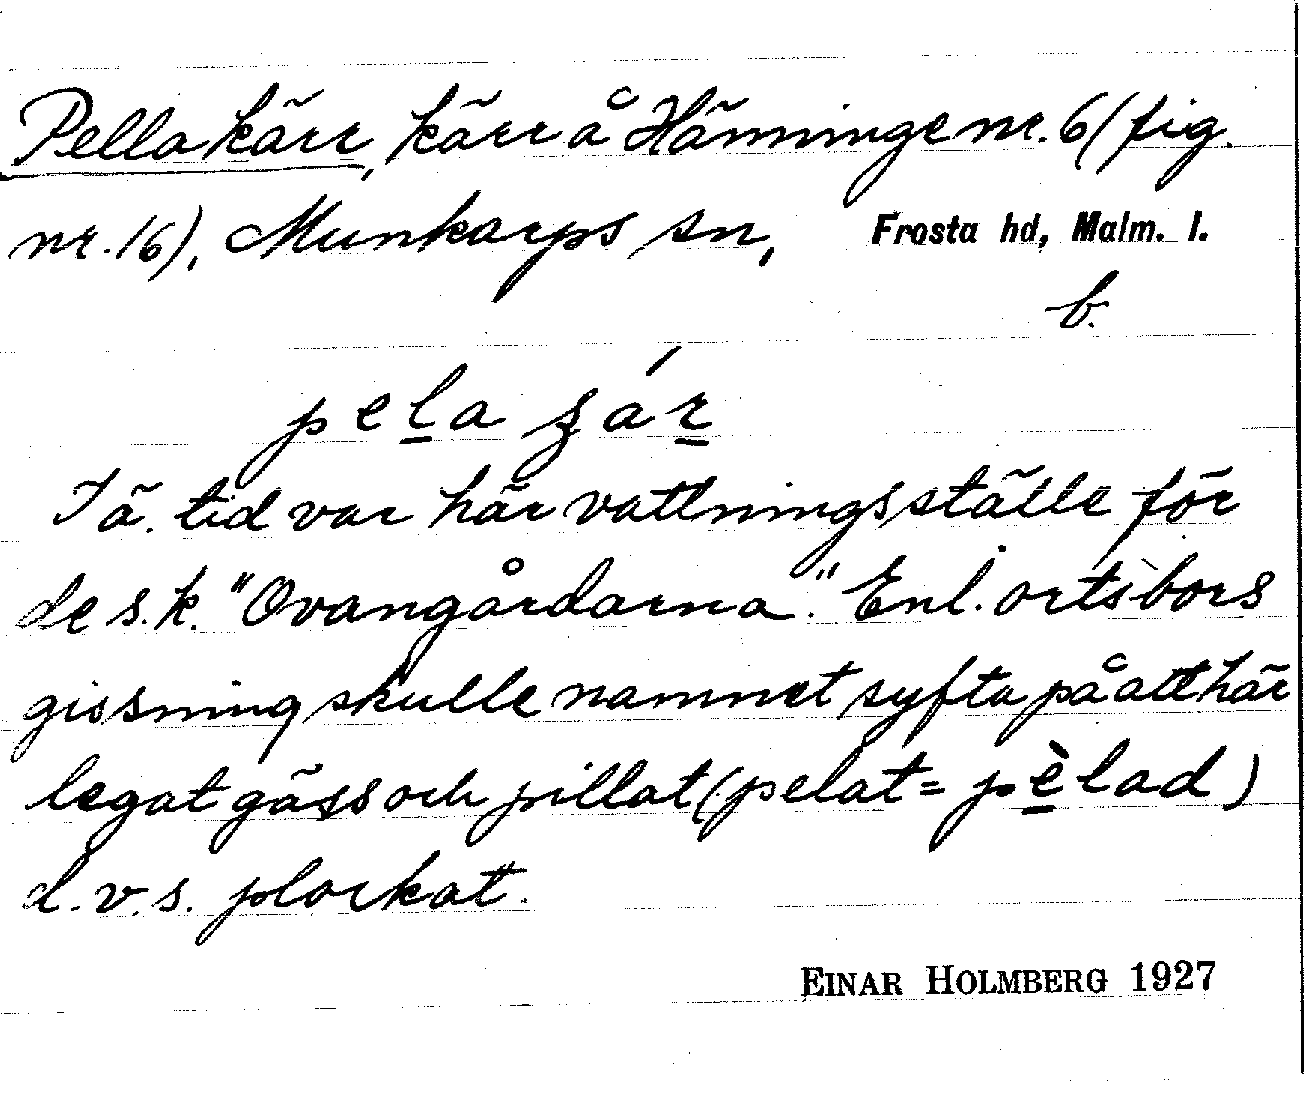 Pella kärr, kärr å Hänninge nr. 6 (fig.
nr. 16), Munkarps sn, Frosta hd, Malm. l.
b.
pela
I ä. tid var här vattningsställe för
de s.k. "Ovangårdarna." Enl. ortsbors
gissning skulle namnet syfta på att här
legat gäss och pillat (pelat = pèlad)
d.v.s. plockat.
EINAR HOLMBERG 1927